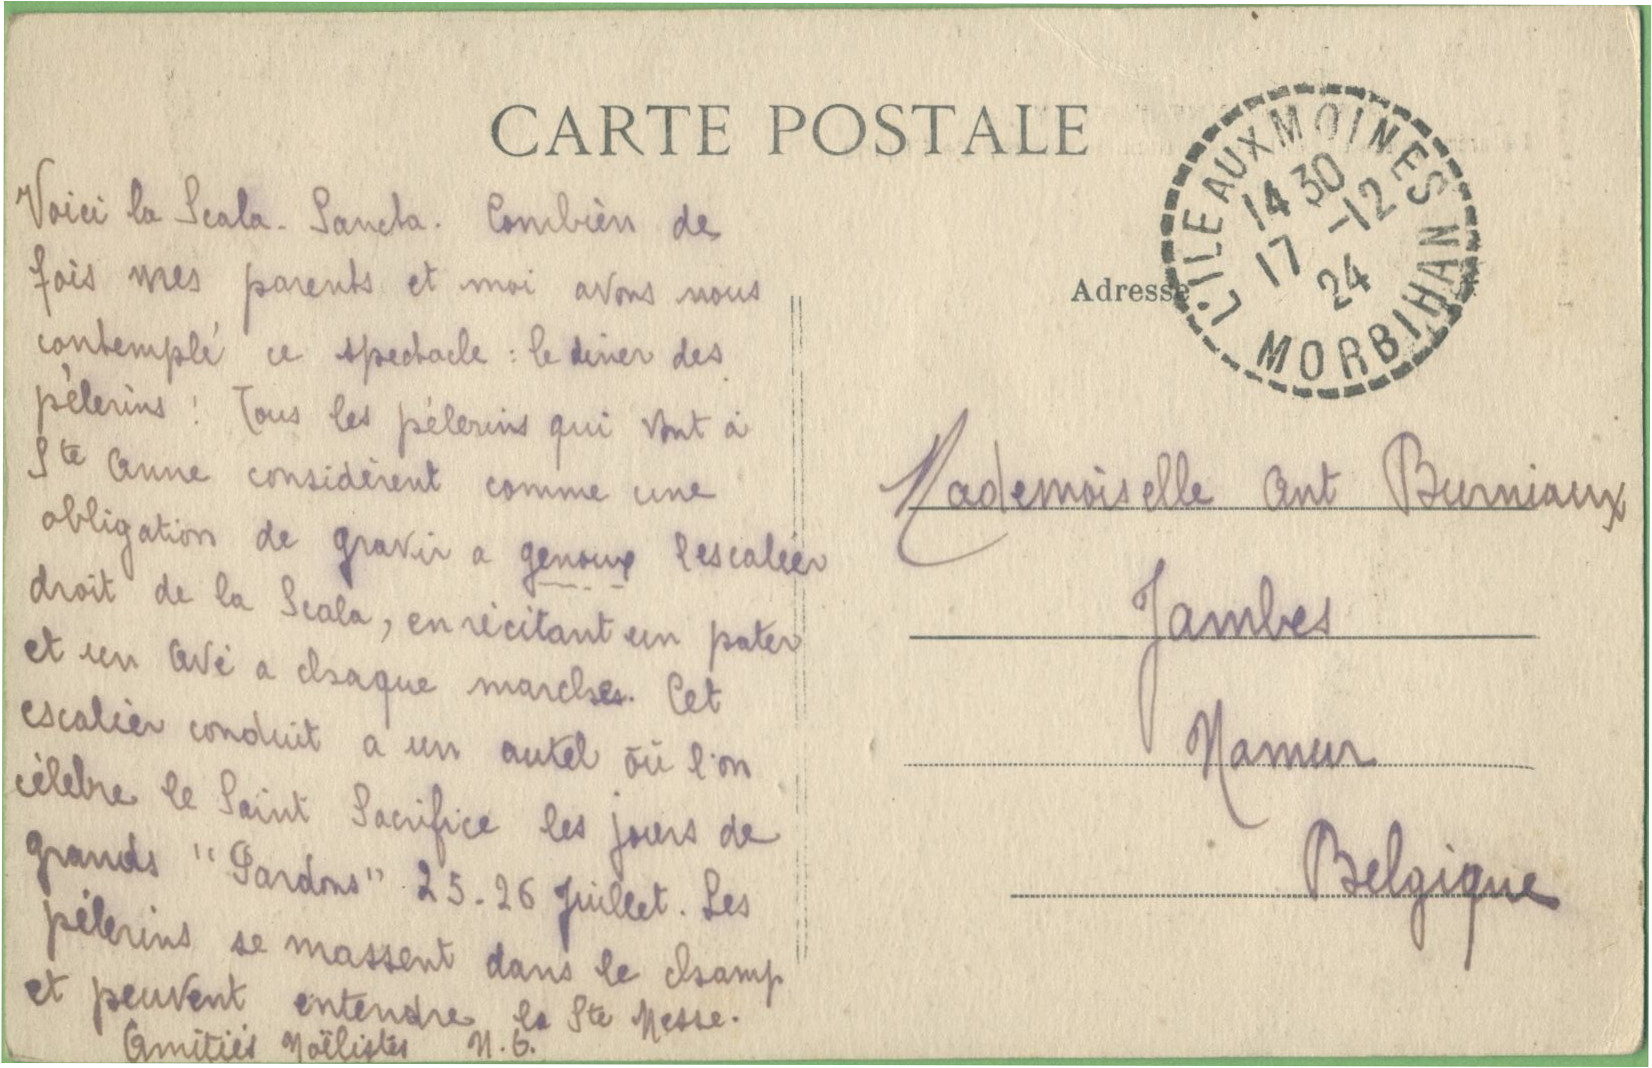 CARTE POSTALE
Voici la Scala-Sancta. Combien de
fois mes parents et moi avons nous
contemplé ce spectacle : le diner des
pélerins ! Tous les pélerins qui vont à
Ste Anne considèrent comme une
obligation de gravir a genoux l'escalier
droit de la Scala, en récitant un pater
et un Avé a chaque marches. Cet
escalier conduit a un autel où l'on
célebre le Saint Sacrifice les jours de
grands "Pardons" 25-26 Juillet. Les
pélerins se massent dans le champ
et peuvent entendre la Ste Messe.
Amitiés Noëlistes N. G.
L'ILE AUX MOINES
14 30
17 -12
24
MORBIHAN
Adresse
Mademoiselle Ant Burniaux
Jambes
Namur
Belgique